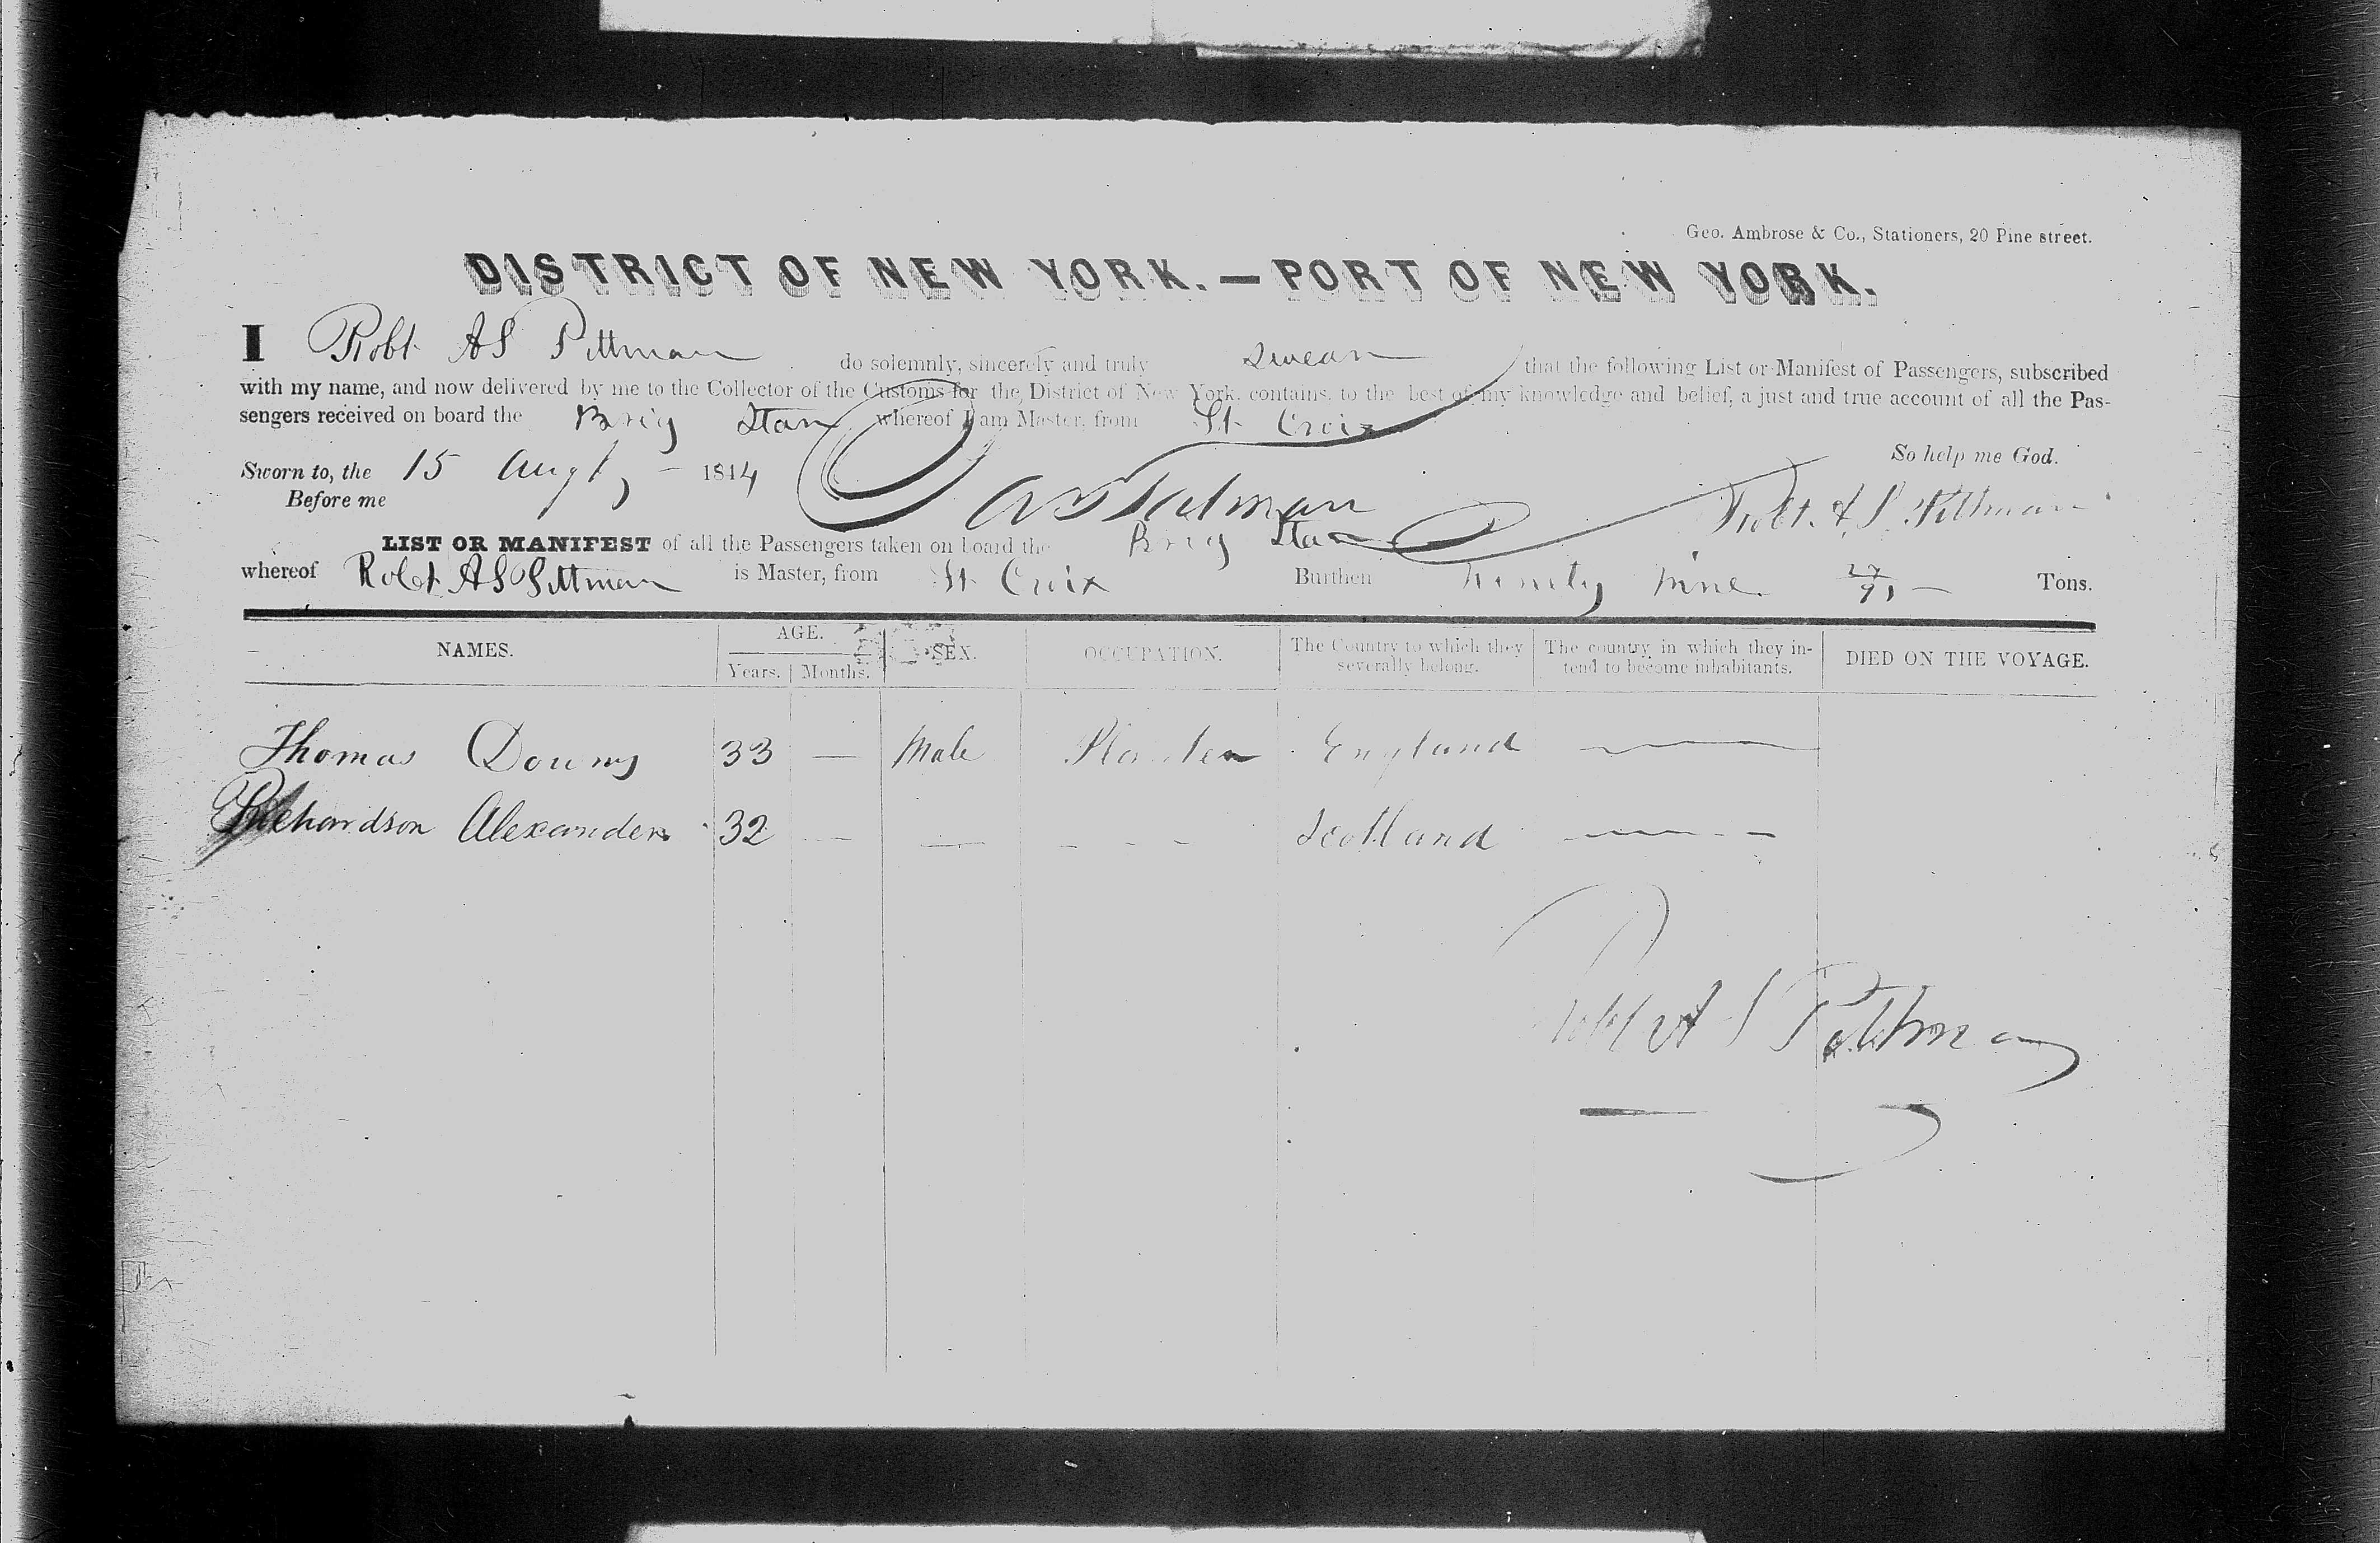 Geo. Ambrose & Co., Stationers, 20 Pine street.
DISTRICT OF NEW YORK.—PORT OF NEW YORK.
I Robt AS Pittman do solemnly, sincerely and truly swear that the following List or Manifest of Passengers, subscribed
with my name, and now delivered by me to the Collector of the Customs for the District of New York, contains, to the best of my knowledge and belief, a just and true account of all the Pas-
sengers received on board the Brig Star whereof I am Master, from St. Croix
So help me God.
Sworn to, the 15 Augt — 1844
Before me
Robt. A S Pittman
LIST OR MANIFEST of all the Passengers taken on board the Brig Star
whereof Robt AS Pittman is Master, from St. Croix Burthen ninety nine Tons.
NAMES. AGE. Years. Months. SEX. OCCUPATION. The Country to which they severally belong. The country in which they intend to become inhabitants. DIED ON THE VOYAGE.
Thomas 33 — Male Planter England —
Richardson Alexander 32 — — - - - Scotland —
Robert A S Pittman